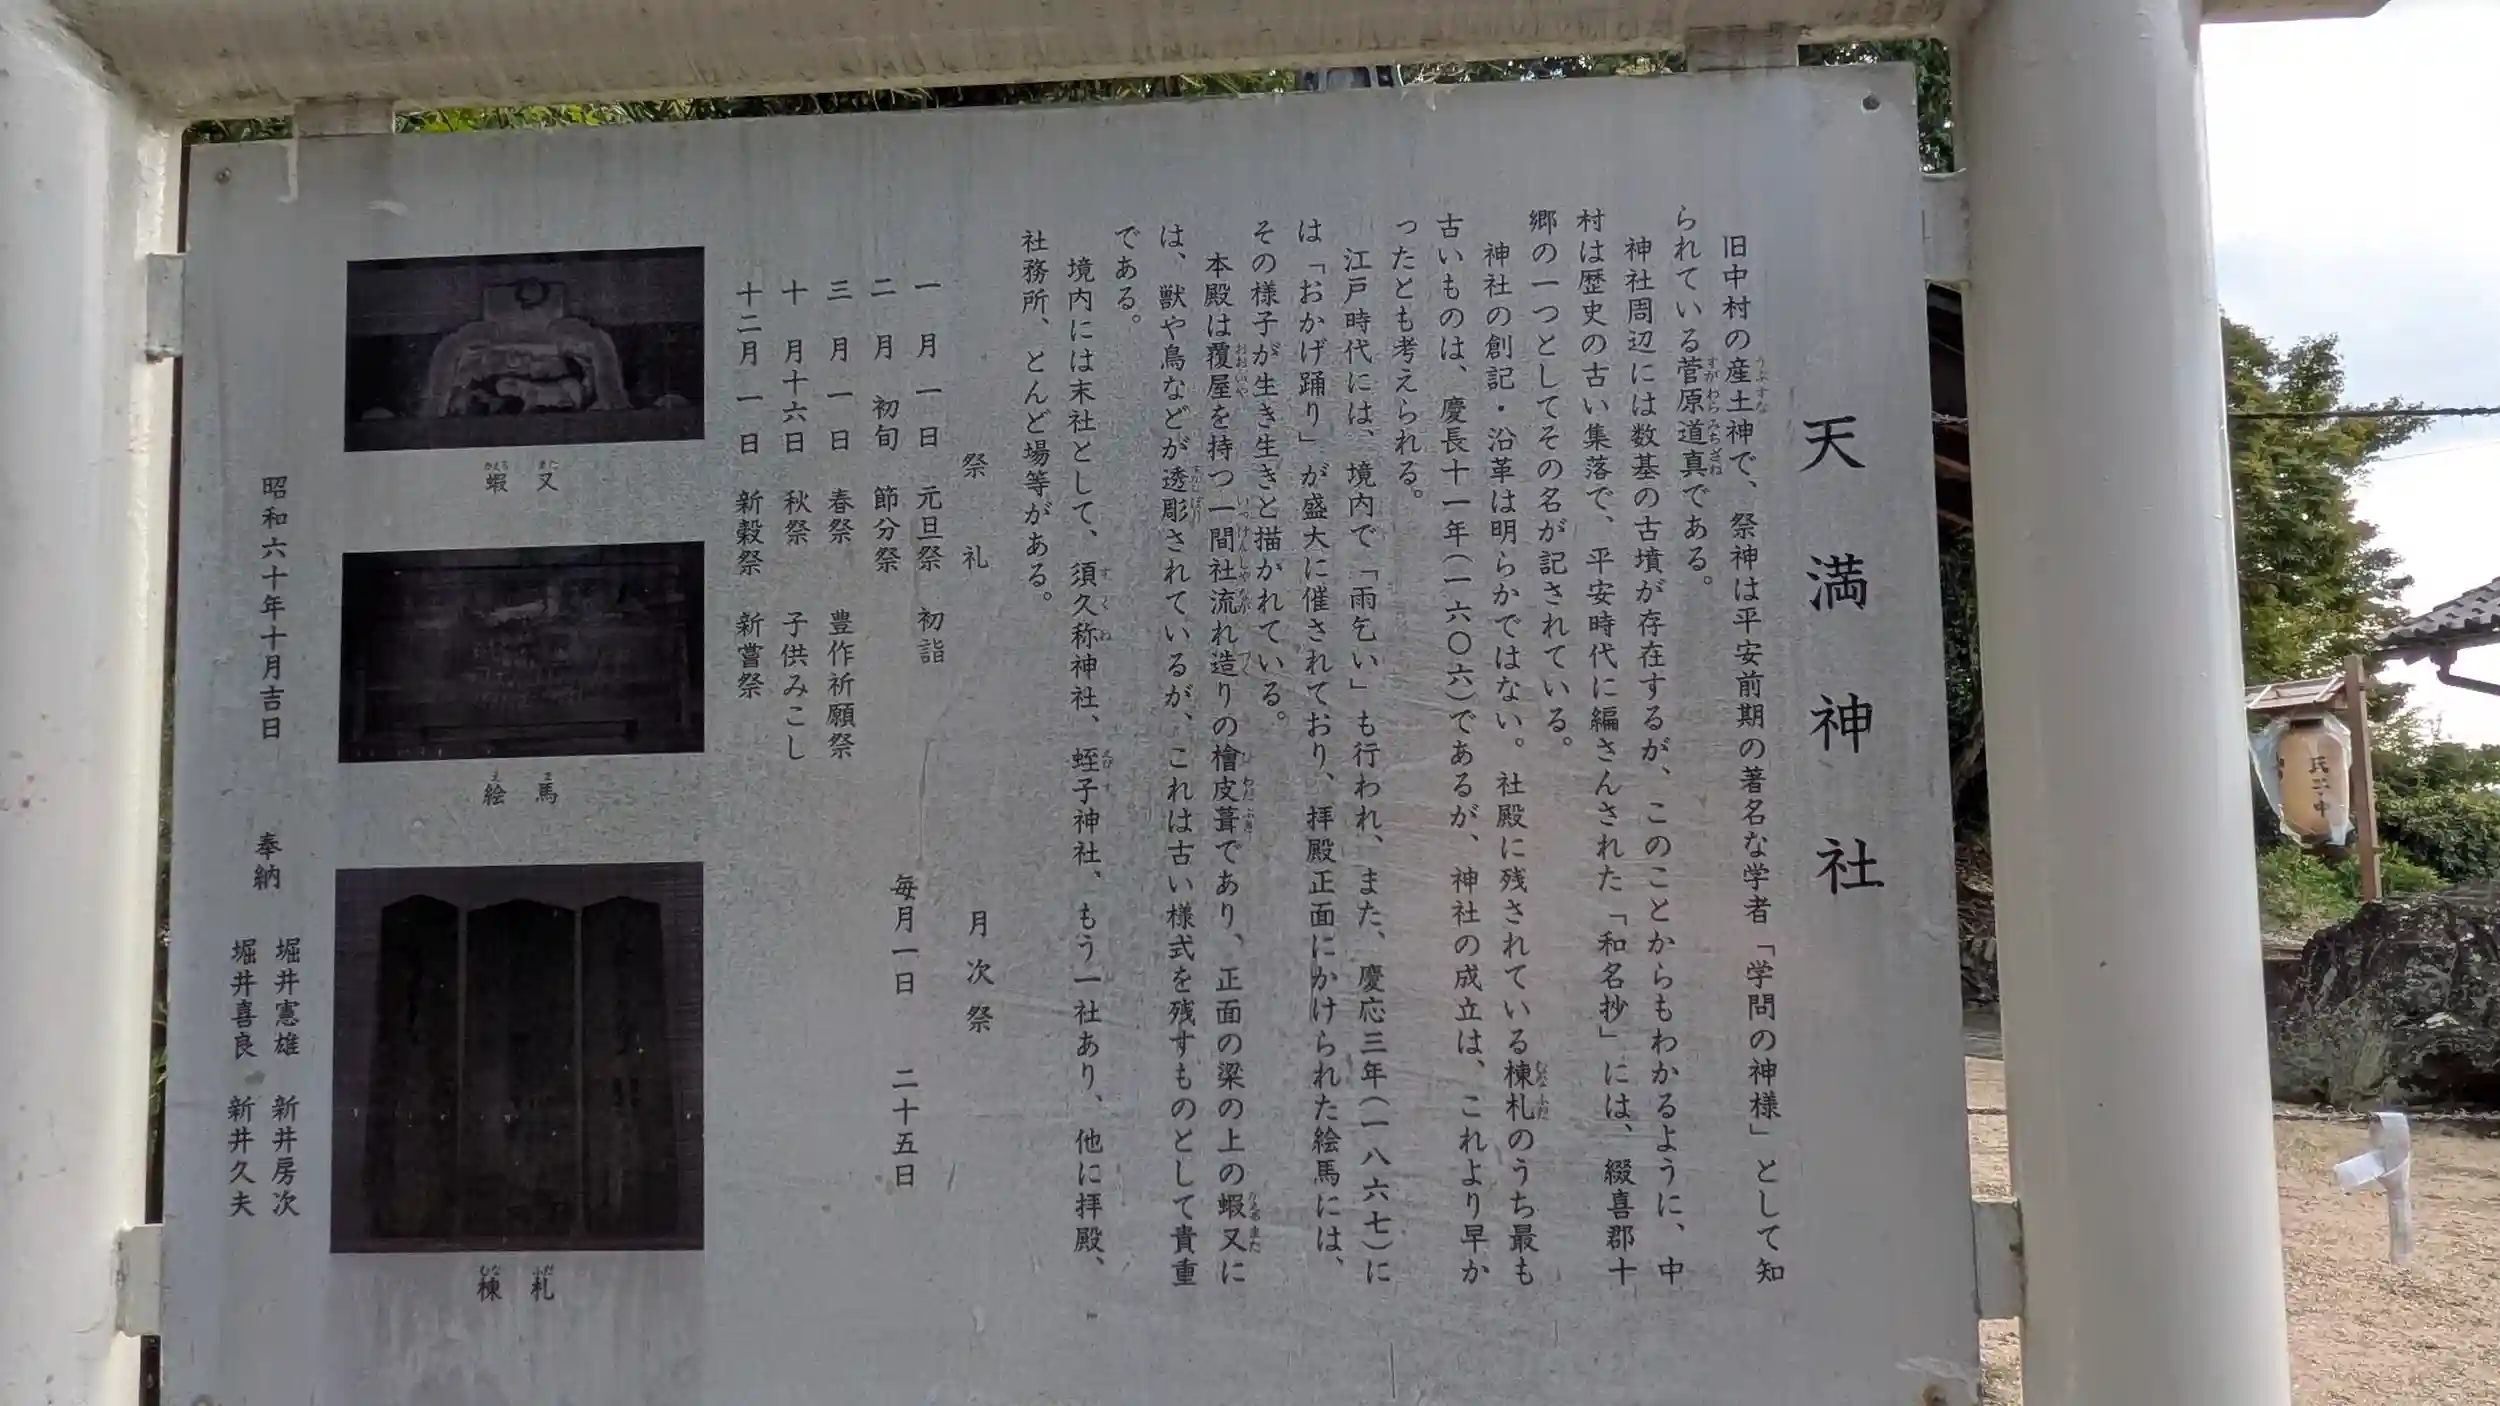 天満神社
旧中村の産土神で、祭神は平安前期の著名な学者「学問の神様」として知
られている菅原道真である。
神社周辺には数基の古墳が存在するが、このことからもわかるように、中
村は歴史の古い集落で、平安時代に編さんされた「和名抄」には、綴喜郡十
郷の一つとしてその名が記されている。
神社の創記・沿革は明らかではない。社殿に残されている棟札のうち最も
古いものは、慶長十一年(一六〇六)であるが、神社の成立は、これより早か
ったとも考えられる。
江戸時代には、境内で「雨乞い」も行われ、また、慶応三年(一八六七)に
は「おかげ踊り」が盛大に催されており、拝殿正面にかけられた絵馬には、
その様子が生き生きと描かれている。
本殿は覆屋を持つ一間社流れ造りの檜皮葺であり、正面の梁の上の蝦又に
は、獣や鳥などが透彫されているが、これは古い様式を残すものとして貴重
である。
境内には末社として、須久称神社、蛭子神社、もう一社あり、他に拝殿、
社務所、とんど場等がある。
祭礼
一月一日 元旦祭 初詣
二月 初旬 節分祭
三月一日 春祭 豊作祈願祭
十月十六日 秋祭 子供みこし
十二月一日 新穀祭 新嘗祭
月次祭
毎月一日 二十五日
蝦又
絵馬
棟札
昭和六十年十月吉日
奉納
堀井憲雄 新井房次
堀井喜良 新井久夫
氏子中